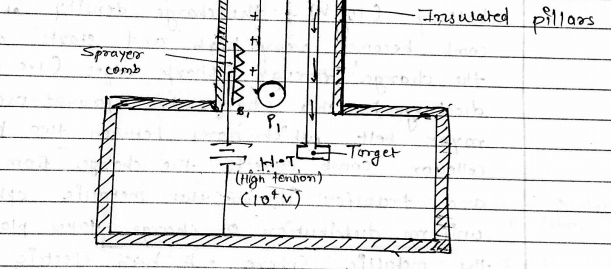 Insulated pillars
+
+
+
Sprayer
comb
B₁
P₁
Target
H.T
(High tension)
(10⁴ V)